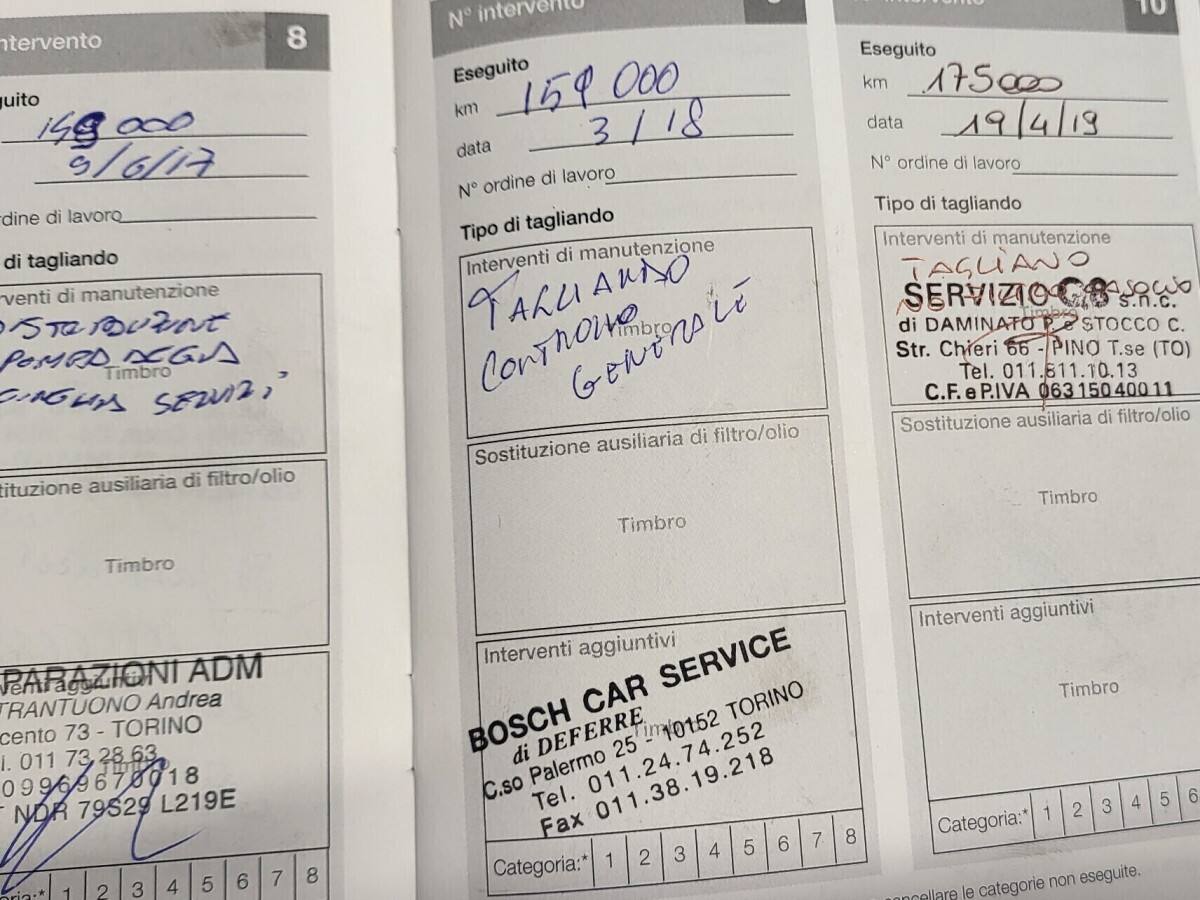 ntervento 8
guito
000
9/6/17
rdine di lavoro
di tagliando
rventi di manutenzione
POMPA ACQUA
Timbro
CINGHIA SERVIZI
tituzione ausiliaria di filtro/olio
Timbro
PARAZIONI ADM
venti aggiuntivi
TRANTUONO Andrea
cento 73 - TORINO
l. 011 73 28 63
Timbro
09969670018
NDR 79S29 L219E
ria:* 1 2 3 4 5 6 7 8
N° intervento
Eseguito
km 159 000
data 3/18
N° ordine di lavoro
Tipo di tagliando
Interventi di manutenzione
TAGLIANDO
CONTROLLO
Timbro
GENERALE
Sostituzione ausiliaria di filtro/olio
Timbro
Interventi aggiuntivi
BOSCH CAR SERVICE
di DEFERRE
Timbro
C.so Palermo 25 - 10152 TORINO
Tel. 011.24.74.252
Fax 011.38.19.218
Categoria:* 1 2 3 4 5 6 7 8
10
Eseguito
km 175000
data 19/4/19
N° ordine di lavoro
Tipo di tagliando
Interventi di manutenzione
TAGLIANO
SERVIZIO s.n.c.
Timbro
di DAMINATO P. e STOCCO C.
Str. Chieri 66 - PINO T.se (TO)
Tel. 011.811.10.13
C.F. e P.IVA 06315040011
Sostituzione ausiliaria di filtro/olio
Timbro
Interventi aggiuntivi
Timbro
Categoria:* 1 2 3 4 5 6
cancellare le categorie non eseguite.